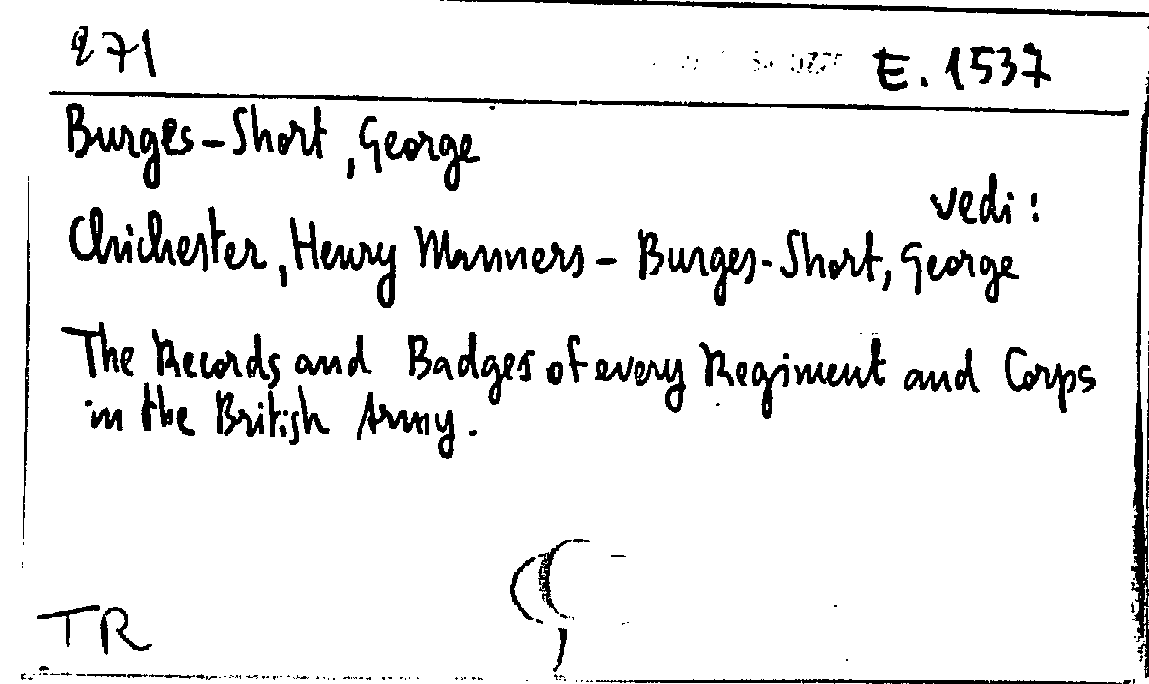 271 E. 1537
Burges-Short, George
vedi:
Chichester, Henry Manners - Burges-Short, George
The Records and Badges of every Regiment and Corps
in the British Army.
TR